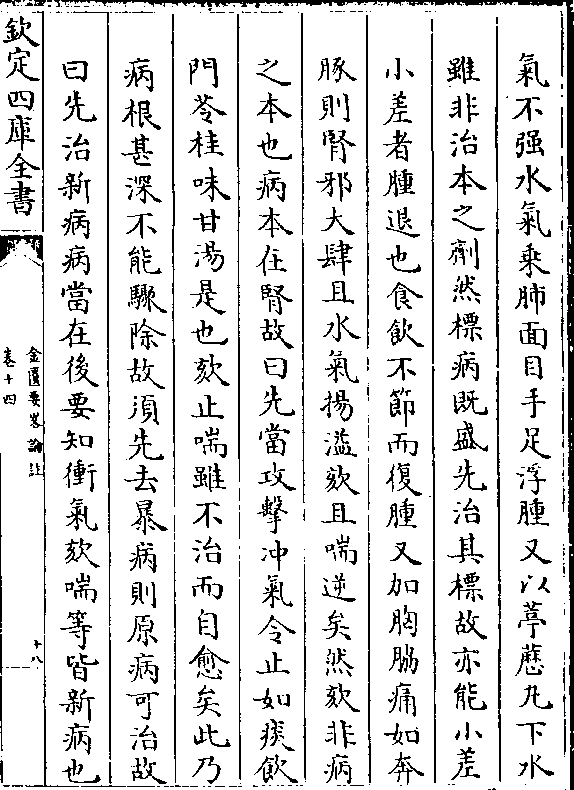 氣不强水氣乗肺面目手足浮腫又以葶藶丸下水
雖非治本之劑然標病既盛先治其標故亦能小差
小差者腫退也食飲不節而復腫又加胸脇痛如奔
豚則腎邪大肆且水氣揚溢欬且喘逆矣然欬非病
之本也病本在腎故曰先當攻擊冲氣令止如痰飲
門苓桂味甘湯是也欬止喘雖不治而自愈矣此乃
病根甚深不能驟除故須先去暴病則原病可治故
曰先治新病病當在後要知衝氣欬喘等皆新病也
欽定四庫全書
金匱要畧論註
卷十四
十八